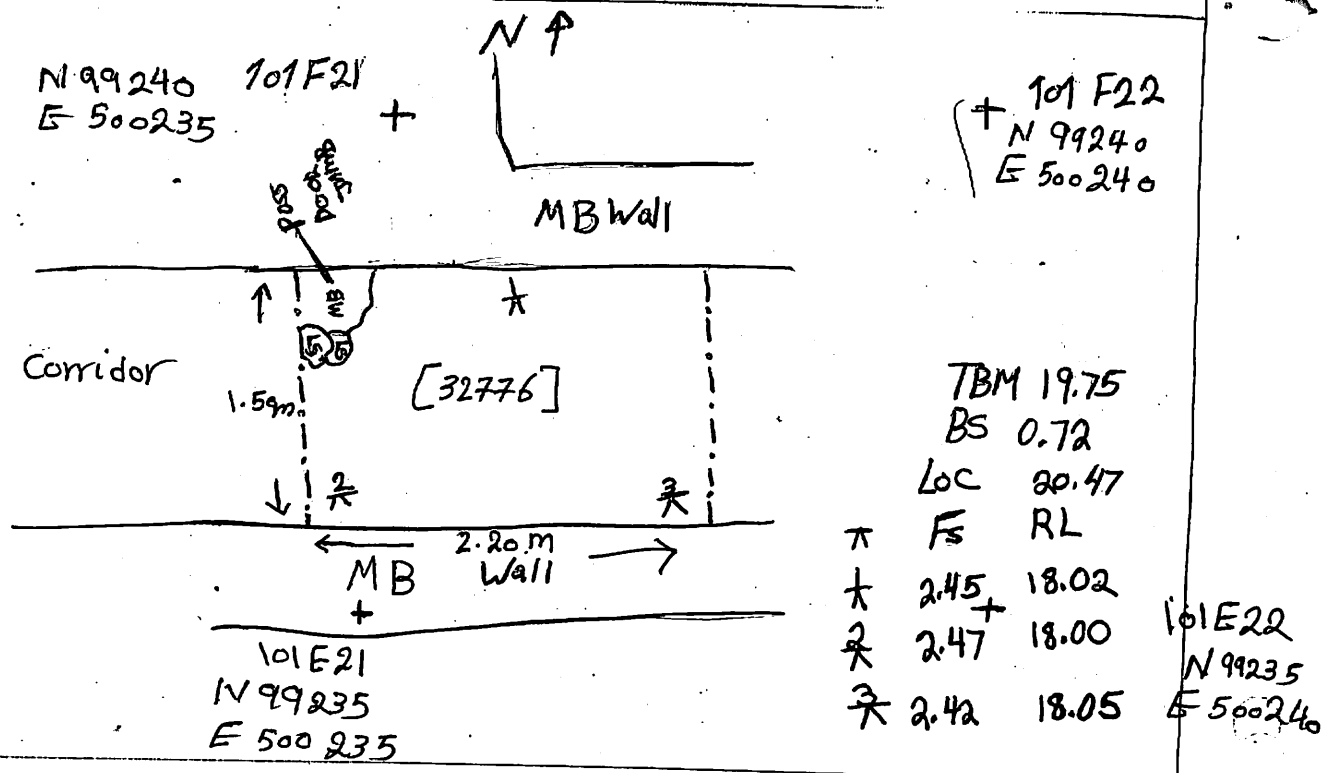 N ↑
N 99240 101F21
E 500235
101 F22
N 99240
E 500240
MB Wall
MB
LS LS
1
Corridor
1.59m.
[32776]
2
3
2.20 m
MB Wall
101E21
N 99235
E 500 235
TBM 19.75
BS 0.72
LOC 20.47
Fs RL
1 2.45 18.02
2 2.47 18.00
3 2.42 18.05
101E22
N 99235
E 500240